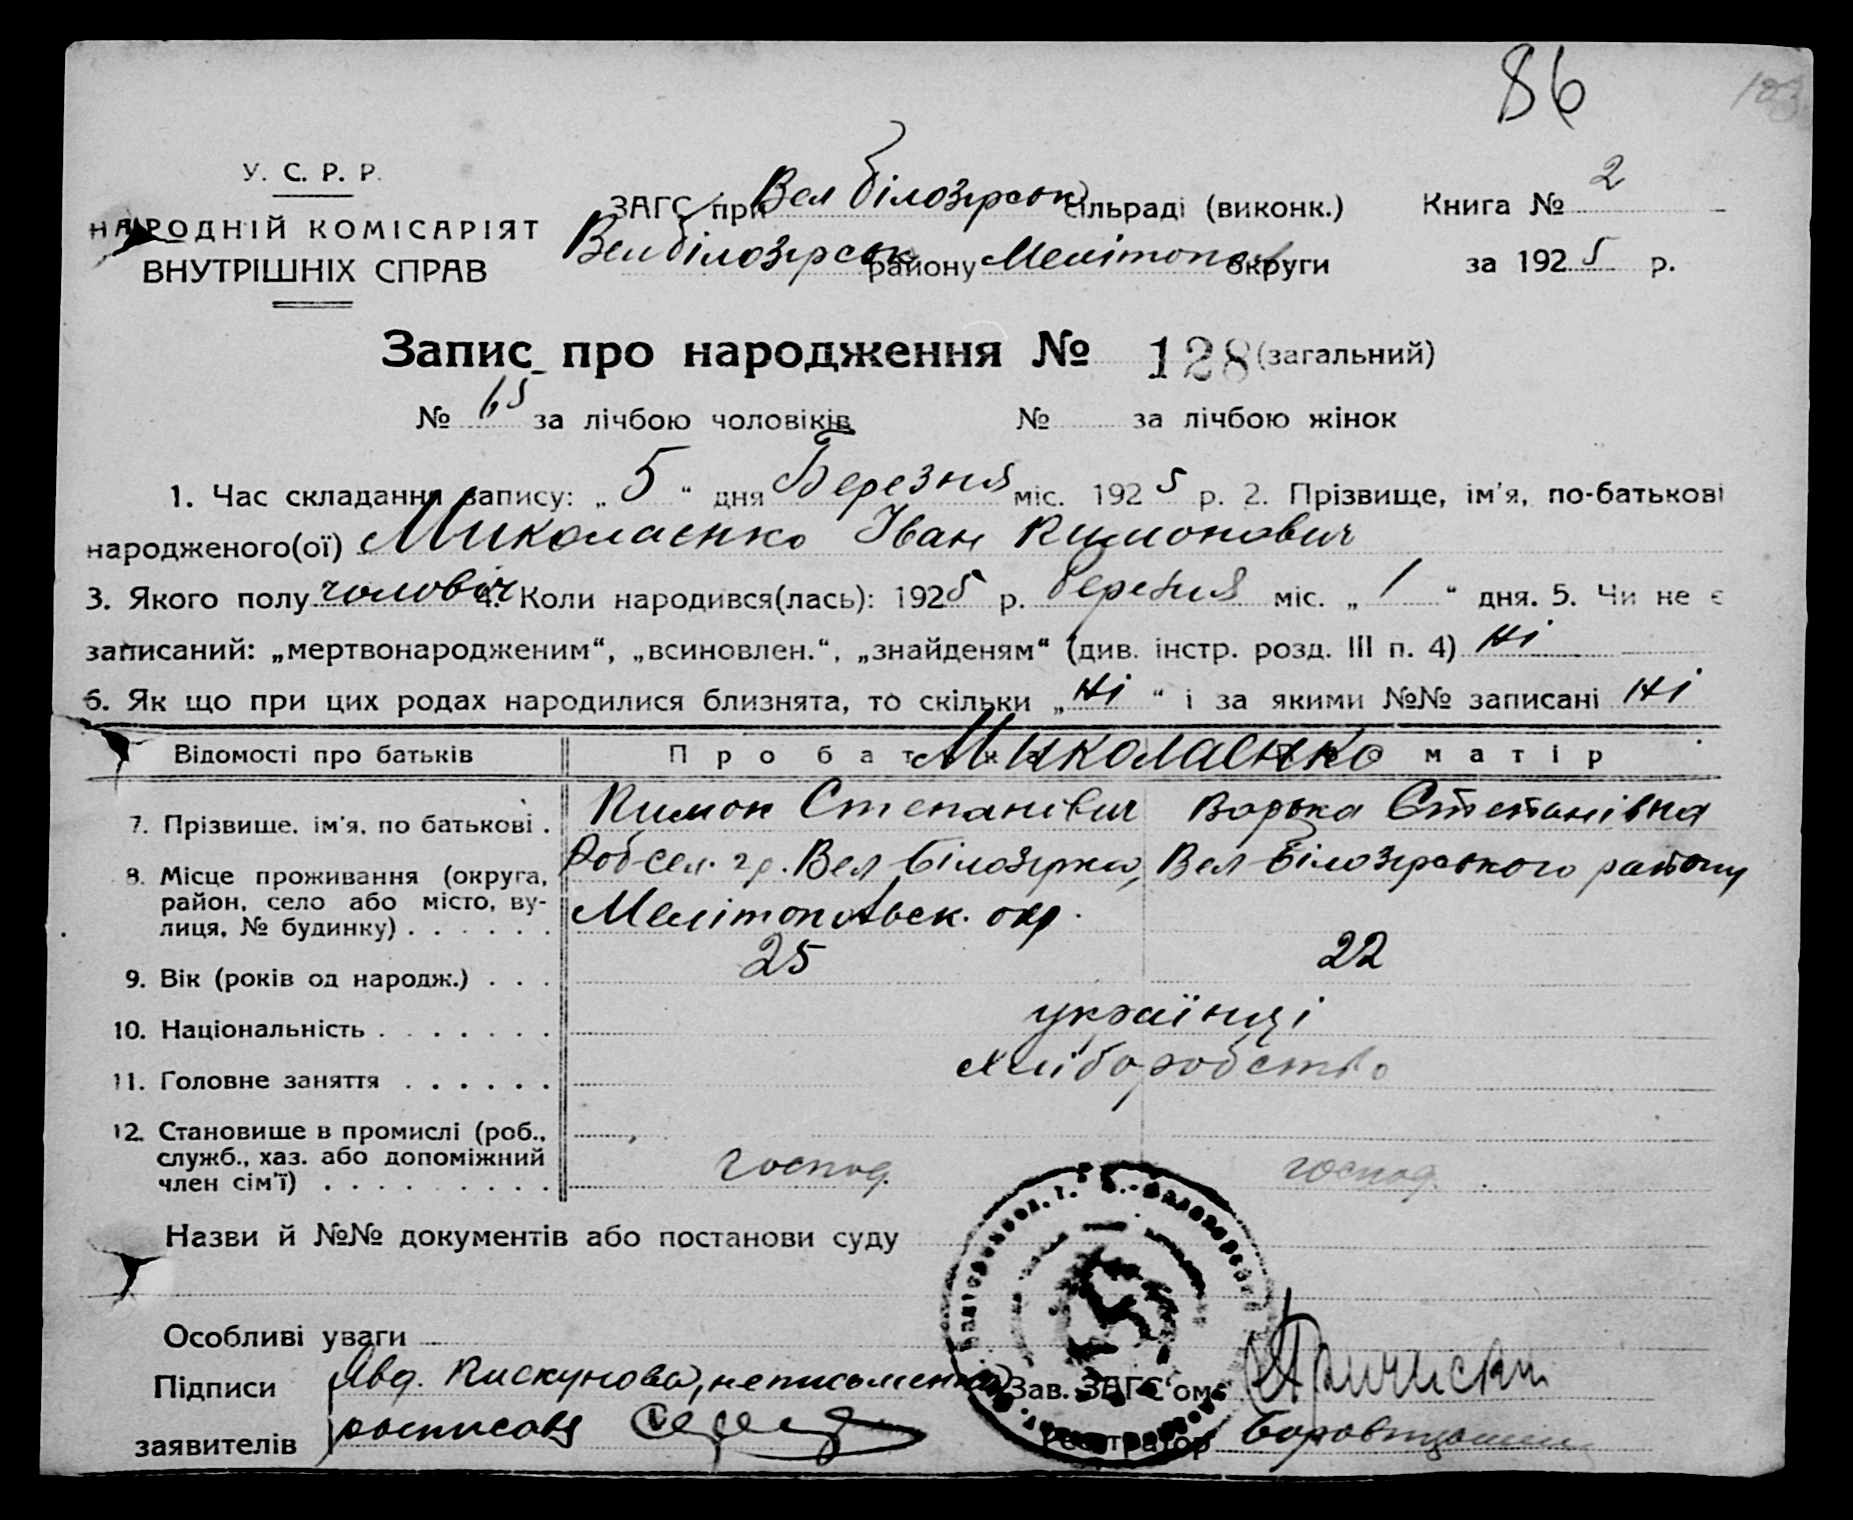 86
103
У. С. Р. Р.
НАРОДНІЙ КОМІСАРІЯТ
ВНУТРІШНІХ СПРАВ
ЗАГС при Вел Білозірськ сільраді (виконк.) Книга № 2
Вел Білозірськ району Мелітопол округи за 1925 р.
Запис про народження № 128 (загальний)
№ 65 за лічбою чоловіків № за лічбою жінок
1. Час складання запису: „5“ дня Березня міс. 1925 р. 2. Прізвище, ім'я, по-батькові
народженого(ої) Миколаєнко Іван Пимонович
3. Якого полу чоловіч 4. Коли народився(лась): 1925 р. березня міс. „1“ дня. 5. Чи не є
записаний: „мертвонародженим“, „всиновлен.“, „знайденям“ (див. інстр. розд. III п. 4) Ні
6. Як що при цих родах народилися близнята, то скільки „Ні“ і за якими №№ записані Ні
Відомості про батьків Про батька Про матір
Миколаєнко
7. Прізвище, ім'я, по батькові . Пимон Степанівич Варька Степанівна
8. Місце проживання (округа, район, село або місто, вулиця, № будинку) . . . . . . Вел Білозірка, Вел Білозірського району
Мелітопольск. окр.
9. Вік (років од народж.) . . . 25 22
10. Національність . . . . . . . українці
11. Головне заняття . . . . . . хліборобство
12. Становище в промислі (роб., служб., хаз. або допоміжний член сім'ї) . . . . . . . . . господ. господ.
Назви й №№ документів або постанови суду
Особливі уваги
Підписи Явд. Пискунова, неписьменна Зав. ЗАГС'ом
заявителів росписавс Реєстратор